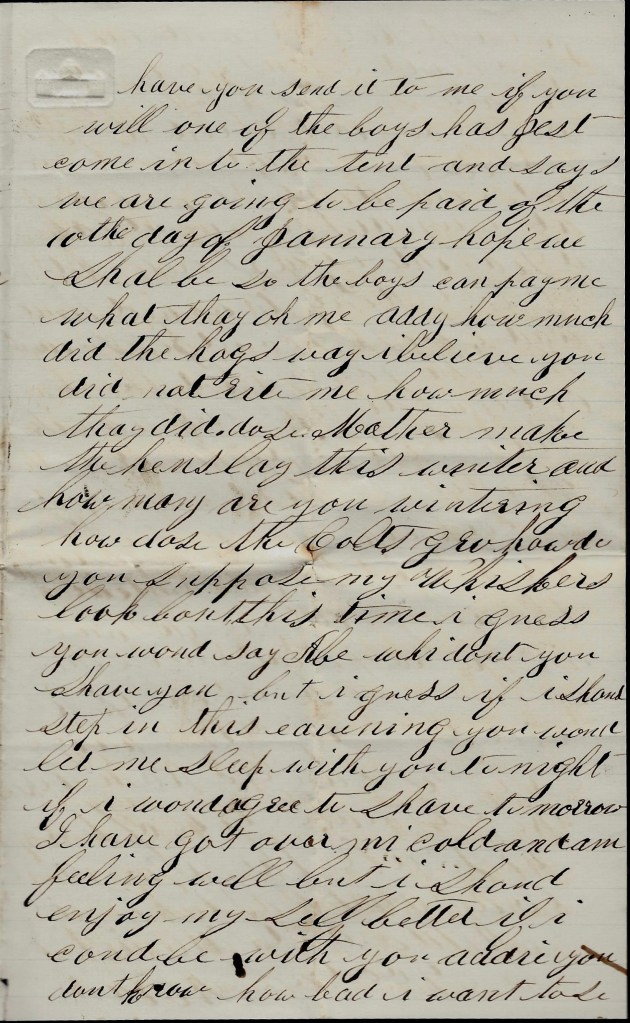 have you send it to me if you
will one of the boys has jest
come in to the tent and says
we are going to be paid of the
10the day of Jannary hope we
Shal be so the boys can pay me
what thay oh me addy how much
did the hogs way i believe you
did not rite me how much
thay did. dose Mother make
the hens lay this winter and
how many are you wintering
how dose the Colts grow how do
you suppose my Whiskers
look bout this time i guess
you woud say Abe whi dont you
shave you but i guess if i shoud
step in this eavening you woud
let me sleep with you to night
if i woud agree to shave to morrow
I have got over mi cold and am
feeling well but i shoud
enjoy my self better if i
coud be with you addie you
dont know how bad i want to se